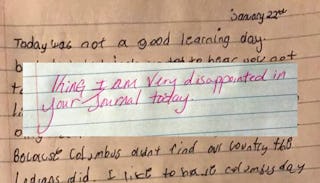 January 22nd
Today was not a good learning day.
b to hear you not
King I am very disappointed in
your Journal today.
Because Columbus didnt find our country the
Indians did. I like to have columbus day